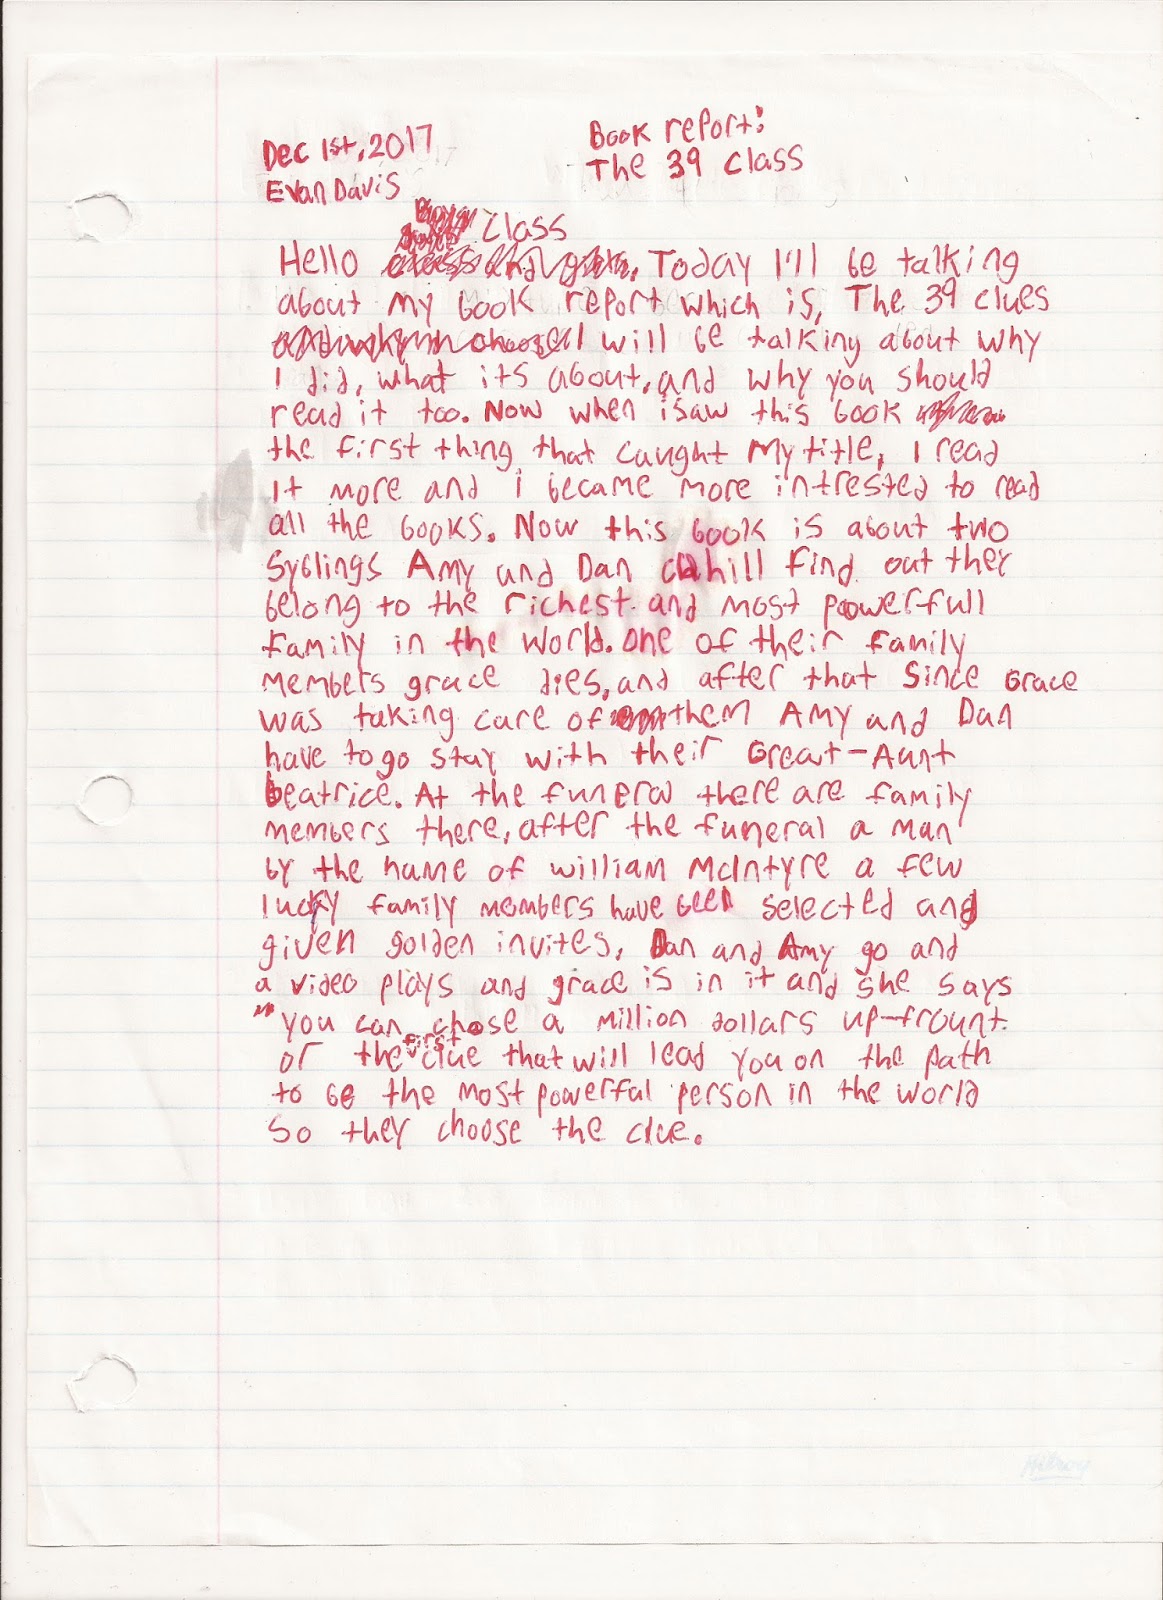 Dec 1st, 2017
Book report:
The 39 class
Evan Davis
class
Hello . Today I'll be talking
about my book report which is, The 39 clues
I will be talking about why
I did, what its about, and why you should
read it too. Now when i saw this book
the first thing that caught My title, I read
It more and i became more intrested to read
all the books. Now this book is about two
Syblings Amy and Dan cahill find out they
belong to the richest and most powerfull
family in the world. One of their family
members grace dies, and after that Since Grace
was taking care of them Amy and Dan
have to go stay with their Great-Aunt
beatrice. At the funeral there are family
members there, after the funeral a man
by the name of william McIntyre a few
lucky family members have been selected and
given golden invites. Dan and Amy go and
a video plays and grace is in it and she says
"you can chose a million dollars up-frount.
or the first clue that will lead you on the path
to be the most powerful person in the world
So they choose the clue.
Hilroy